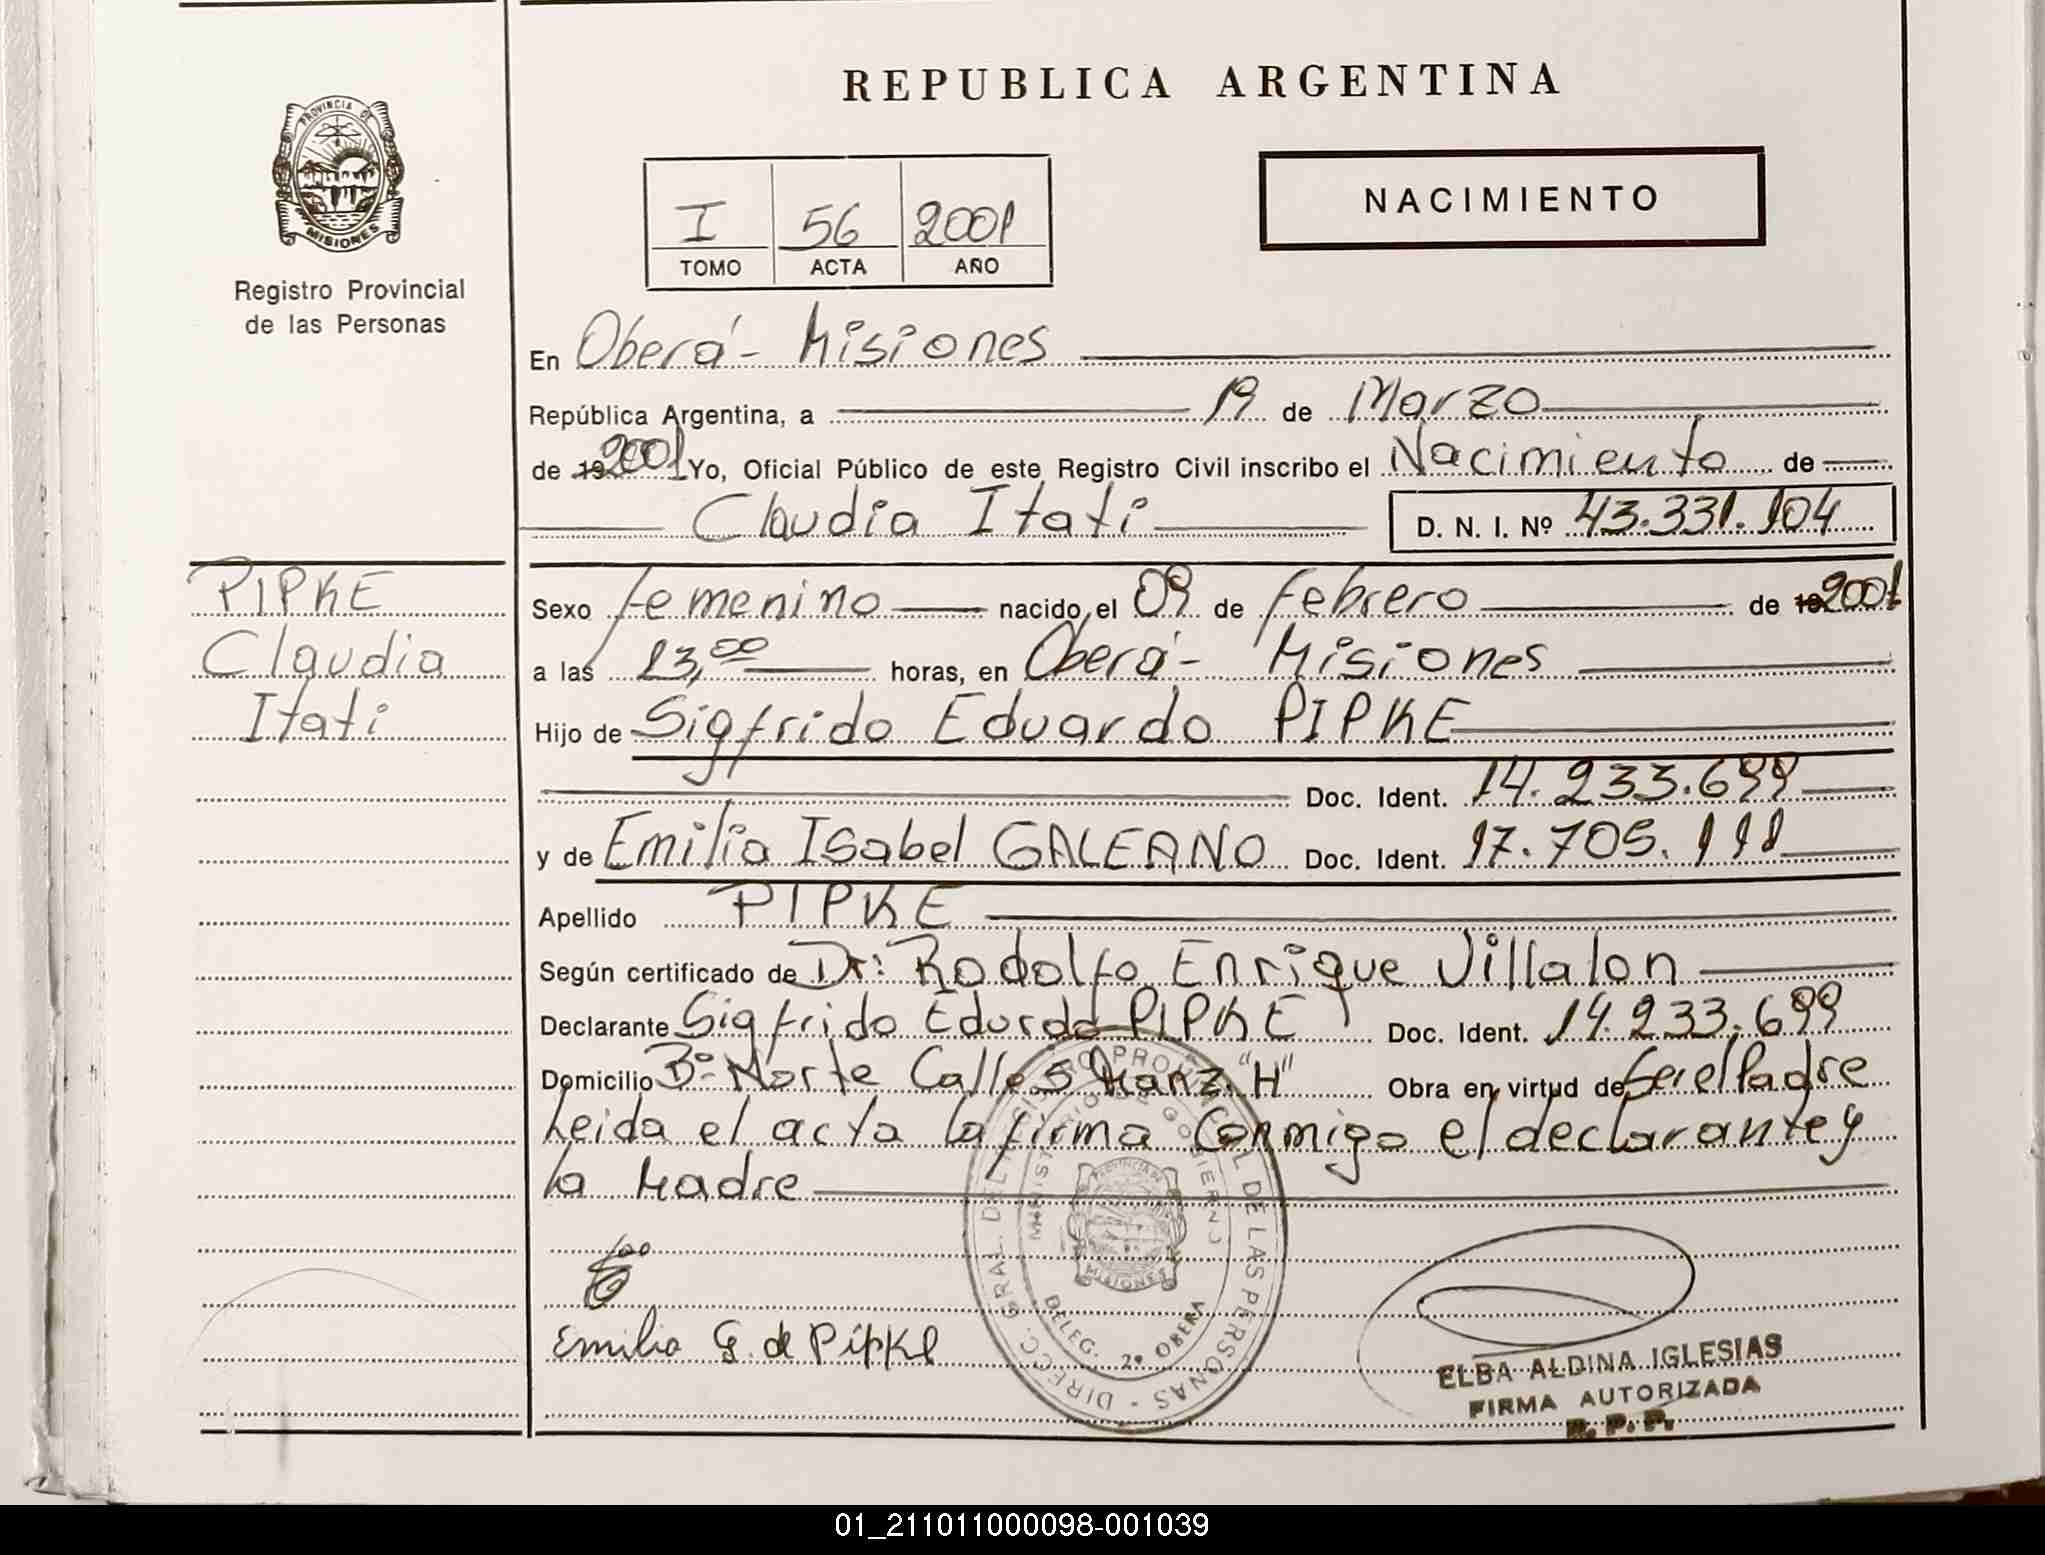 REPUBLICA ARGENTINA
PROVINCIA DE MISIONES
Registro Provincial
de las Personas
NACIMIENTO
I 56 2001
TOMO ACTA AÑO
En Oberá - Misiones
República Argentina, a 19 de Marzo
de 19 2001 Yo, Oficial Público de este Registro Civil inscribo el Nacimiento de
Claudia Itati D. N. I. Nº 43.331.104
PIPKE
Claudia
Itati
Sexo femenino nacido el 09 de febrero de 19 2001
a las 13,00 horas, en Oberá - Misiones
Hijo de Sigfrido Eduardo PIPKE
Doc. Ident. 14.233.699
y de Emilia Isabel GALEANO Doc. Ident. 17.705.111
Apellido PIPKE
Según certificado de Dr: Rodolfo Enrique Villalon
Declarante Sigfrido Eduardo PIPKE Doc. Ident. 14.233.699
Domicilio Bº Norte Calle 5 Manz. "H" Obra en virtud de Ser el Padre
Leida el acta la firma Conmigo el declarante y
la Madre
DIRECC. GRAL. DEL REGISTRO PROVINCIAL DE LAS PERSONAS
MINISTERIO DE GOBIERNO
PROVINCIA DE MISIONES
DELEG. 2º OBERA
Emilia G. de Pipke
ELBA ALDINA IGLESIAS
FIRMA AUTORIZADA
R. P. P.
01_211011000098-001039